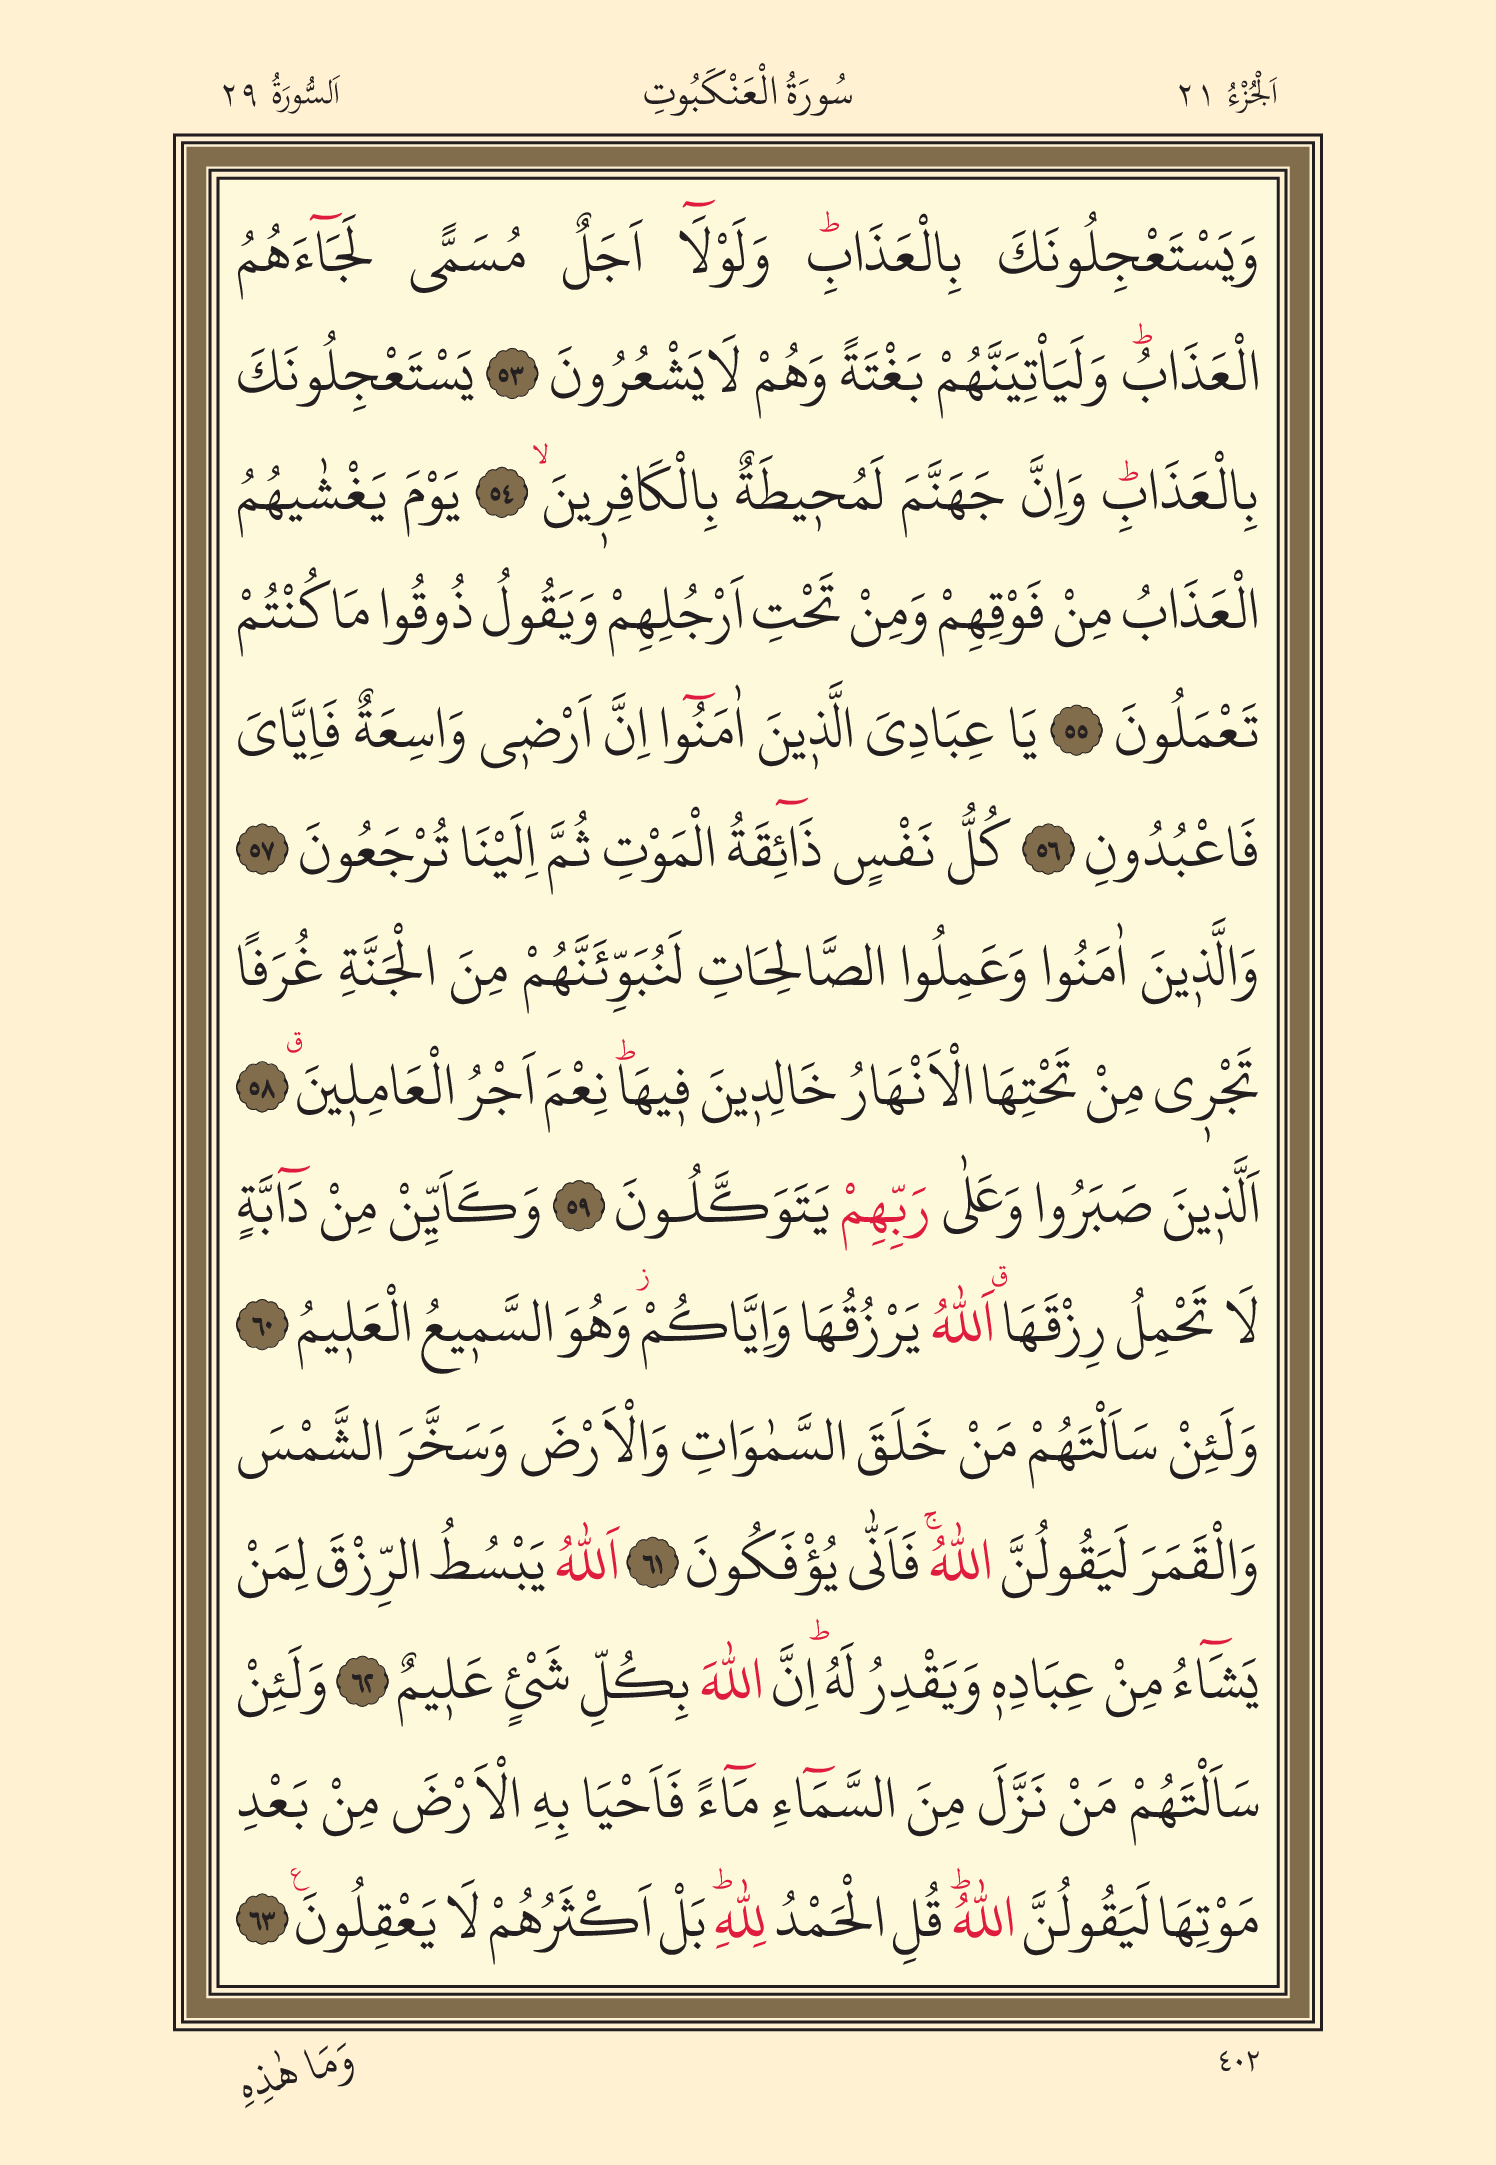 اَلْجُزْءُ ٢١
سُورَةُ الْعَنْكَبُوتِ
اَلسُّورَةُ ٢٩
وَيَسْتَعْجِلُونَكَ بِالْعَذَابِۜ وَلَوْلَٓا اَجَلٌ مُسَمًّى لَجَٓاءَهُمُ
الْعَذَابُۜ وَلَيَأْتِيَنَّهُمْ بَغْتَةً وَهُمْ لَا يَشْعُرُونَ ٥٣ يَسْتَعْجِلُونَكَ
بِالْعَذَابِۜ وَاِنَّ جَهَنَّمَ لَمُح۪يطَةٌ بِالْكَافِر۪ينَۙ ٥٤ يَوْمَ يَغْشٰيهُمُ
الْعَذَابُ مِنْ فَوْقِهِمْ وَمِنْ تَحْتِ اَرْجُلِهِمْ وَيَقُولُ ذُوقُوا مَا كُنْتُمْ
تَعْمَلُونَ ٥٥ يَا عِبَادِيَ الَّذ۪ينَ اٰمَنُٓوا اِنَّ اَرْض۪ي وَاسِعَةٌ فَاِيَّايَ
فَاعْبُدُونِ ٥٦ كُلُّ نَفْسٍ ذَٓائِقَةُ الْمَوْتِ ثُمَّ اِلَيْنَا تُرْجَعُونَ ٥٧
وَالَّذ۪ينَ اٰمَنُوا وَعَمِلُوا الصَّالِحَاتِ لَنُبَوِّئَنَّهُمْ مِنَ الْجَنَّةِ غُرَفًا
تَجْر۪ي مِنْ تَحْتِهَا الْاَنْهَارُ خَالِد۪ينَ ف۪يهَاۜ نِعْمَ اَجْرُ الْعَامِل۪ينَۗ ٥٨
اَلَّذ۪ينَ صَبَرُوا وَعَلٰى رَبِّهِمْ يَتَوَكَّلُونَ ٥٩ وَكَاَيِّنْ مِنْ دَٓابَّةٍ
لَا تَحْمِلُ رِزْقَهَاۗ اَللّٰهُ يَرْزُقُهَا وَاِيَّاكُمْۘ وَهُوَ السَّم۪يعُ الْعَل۪يمُ ٦٠
وَلَئِنْ سَاَلْتَهُمْ مَنْ خَلَقَ السَّمٰوَاتِ وَالْاَرْضَ وَسَخَّرَ الشَّمْسَ
وَالْقَمَرَ لَيَقُولُنَّ اللّٰهُۚ فَاَنّٰى يُؤْفَكُونَ ٦١ اَللّٰهُ يَبْسُطُ الرِّزْقَ لِمَنْ
يَشَٓاءُ مِنْ عِبَادِه۪ وَيَقْدِرُ لَهُۜ اِنَّ اللّٰهَ بِكُلِّ شَيْئٍ عَل۪يمٌ ٦٢ وَلَئِنْ
سَاَلْتَهُمْ مَنْ نَزَّلَ مِنَ السَّمَٓاءِ مَٓاءً فَاَحْيَا بِهِ الْاَرْضَ مِنْ بَعْدِ
مَوْتِهَا لَيَقُولُنَّ اللّٰهُۜ قُلِ الْحَمْدُ لِلّٰهِۜ بَلْ اَكْثَرُهُمْ لَا يَعْقِلُونَ۟ ٦٣
٤٠٢
وَمَا هٰذِهِ